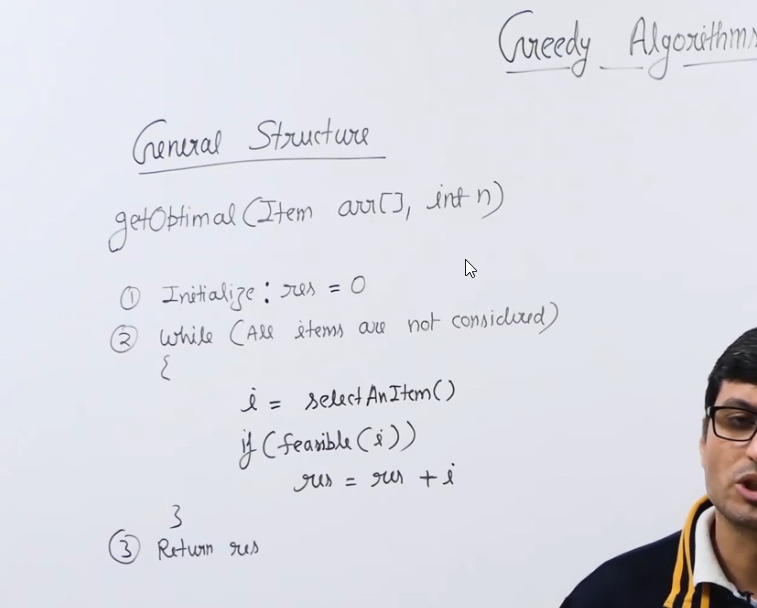 Greedy Algorithms
General Structure
getOptimal(Item arr[], int n)
① Initialize : res = 0
② while (All items are not considered)
{
i = selectAnItem()
if (feasible(i))
res = res + i
}
③ Return res